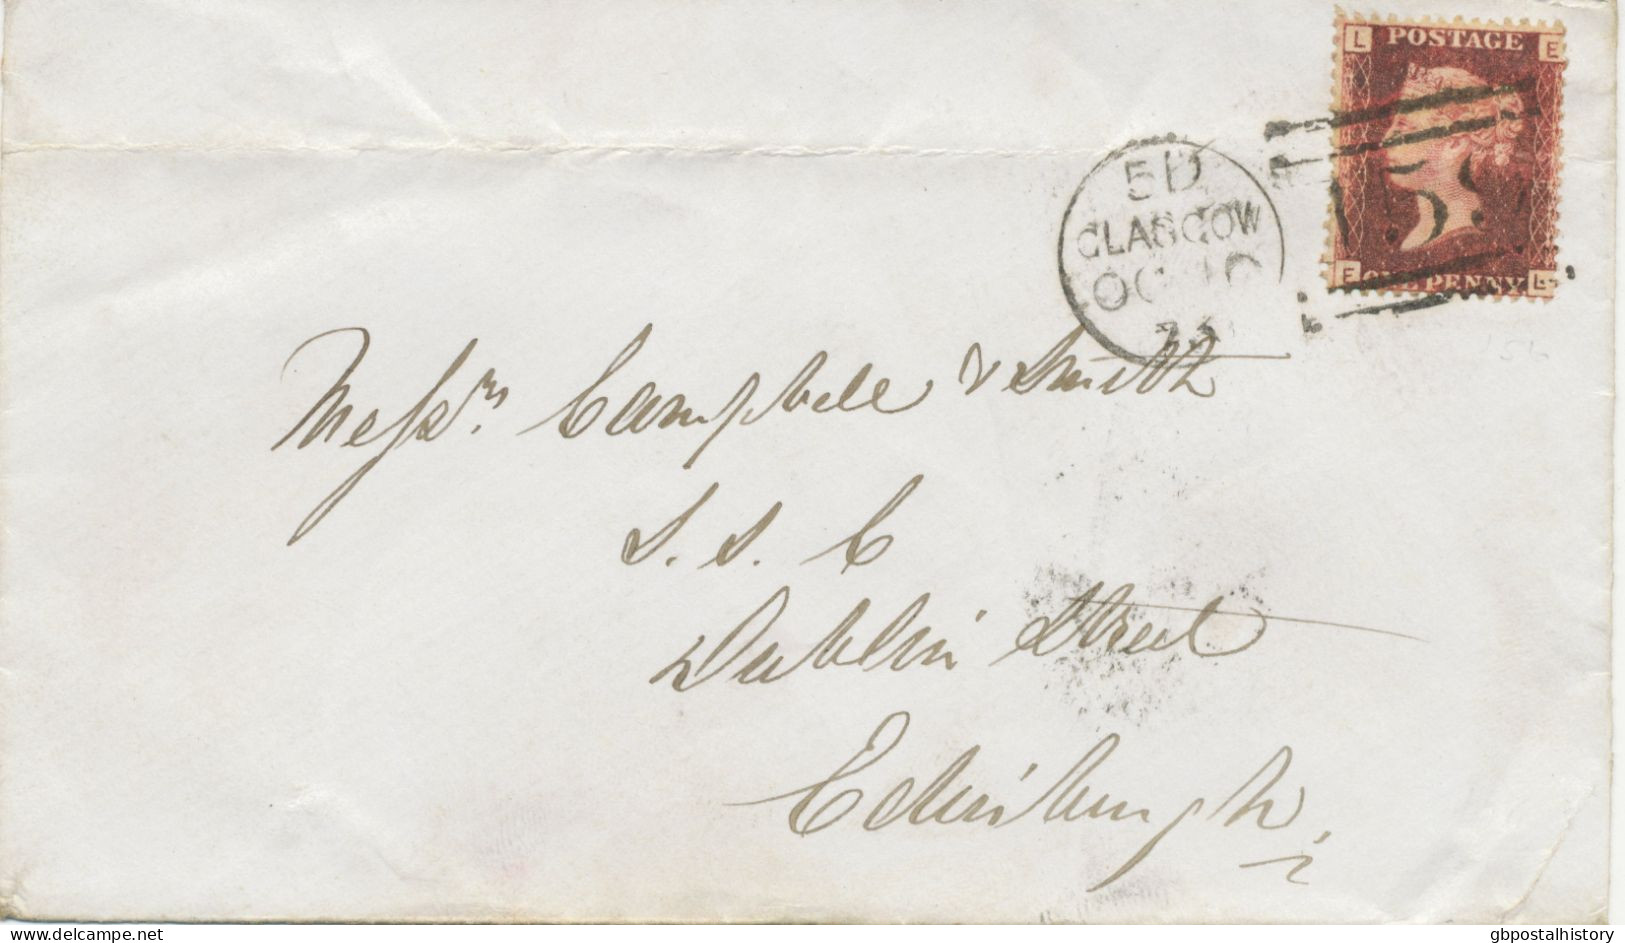 L POSTAGE E
E ONE PENNY L
5D
GLASGOW
OC 10
73
159
156
Messrs. Campbell & Smith
S. S. C
Dublin Street
Edinburgh.
www.delcampe.net
gbpostalhistory